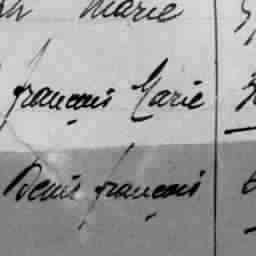 Marie
françois Marie
Denis françois